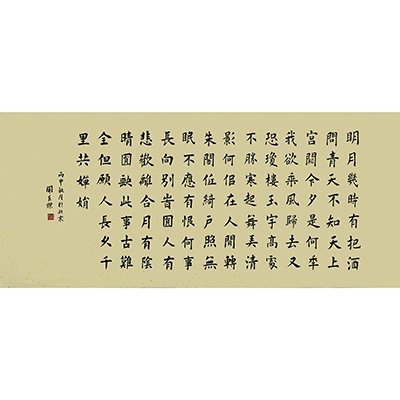 明月幾時有把酒
問青天不知天上
宮闕今夕是何秊
我欲乘風歸去又
恐瓊樓玉宇高處
不勝寒起舞弄清
影何佀在人間轉
朱閣低綺戶照無
眠不應有恨何事
長向別旹圓人有
悲歡離合月有陰
晴圓缺此事古難
全但願人長久千
里共嬋娟
丙申秋月於北京